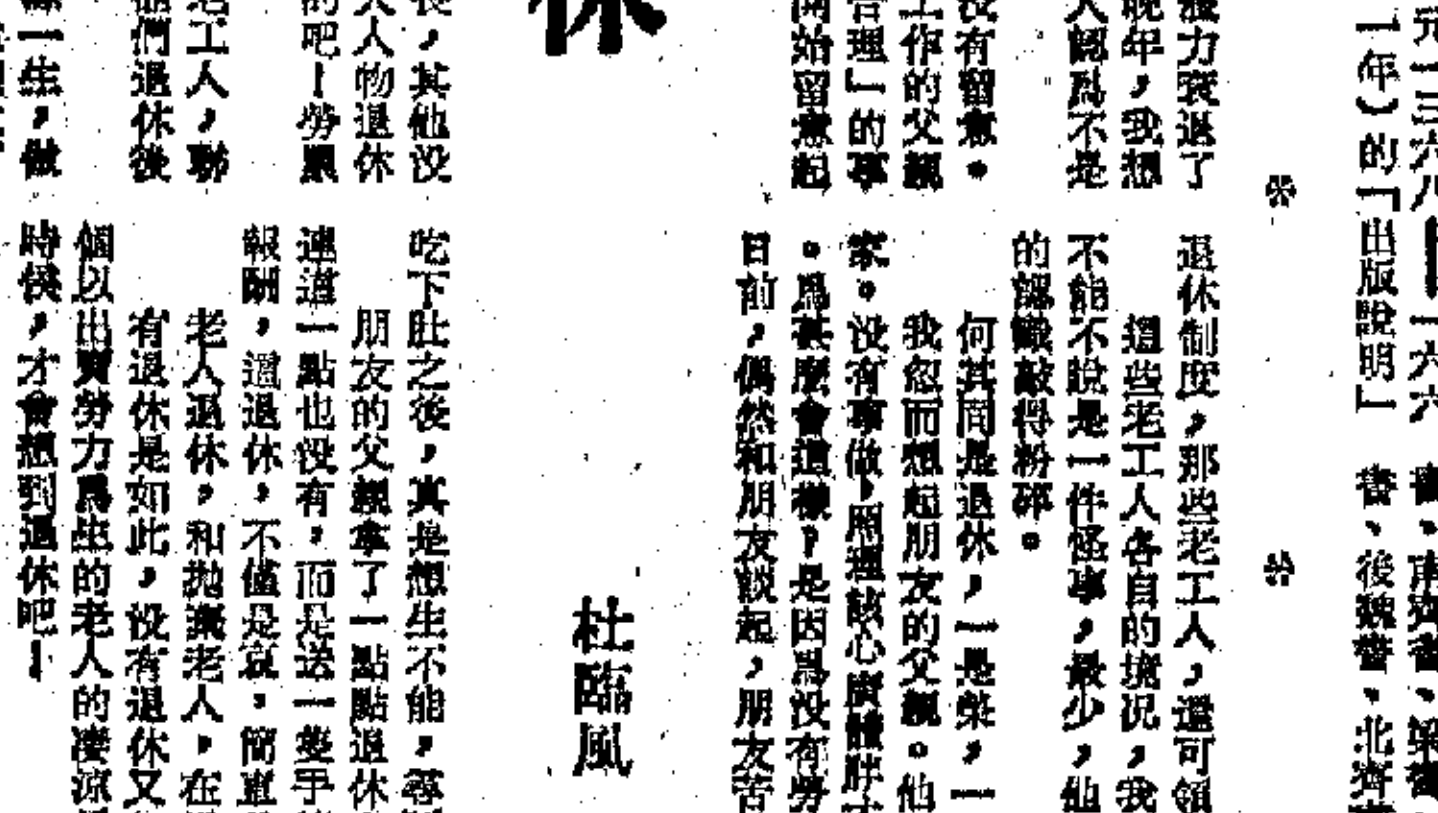 元一三六八
一六六
書、南齊書、梁書
一年)的「出版說明」
書、後魏書、北齊
力衰退了
晚年,我想
人認爲不是
沒有留意。
工作的父親
管理」的事
開始留意起
退休制度,那些老工人,還可領
這些老工人各自的境況,我
不能不說是一件怪事,最少,他
的認識敲得粉碎。
何其同是退休,一是榮,一
我忽而想起朋友的父親。他
家。沒有事做,照理該心廣體胖
。爲甚麼會這樣?是因爲沒有勞
日前,偶然和朋友談起,朋友苦
休
杜臨風
,其他沒
大人物退休
的吧!勞累
老工人,聯
他們退休後
一生,做
吃下肚之後,真是想生不能,尋
朋友的父親拿了一點點退休
連這一點也沒有,而是送一隻手
報酬,這退休,不僅是哀,簡直
老人退休,和拋棄老人,在
有退休是如此,沒有退休又
個以出賣勞力爲生的老人的凄涼
時候,才會想到退休吧!